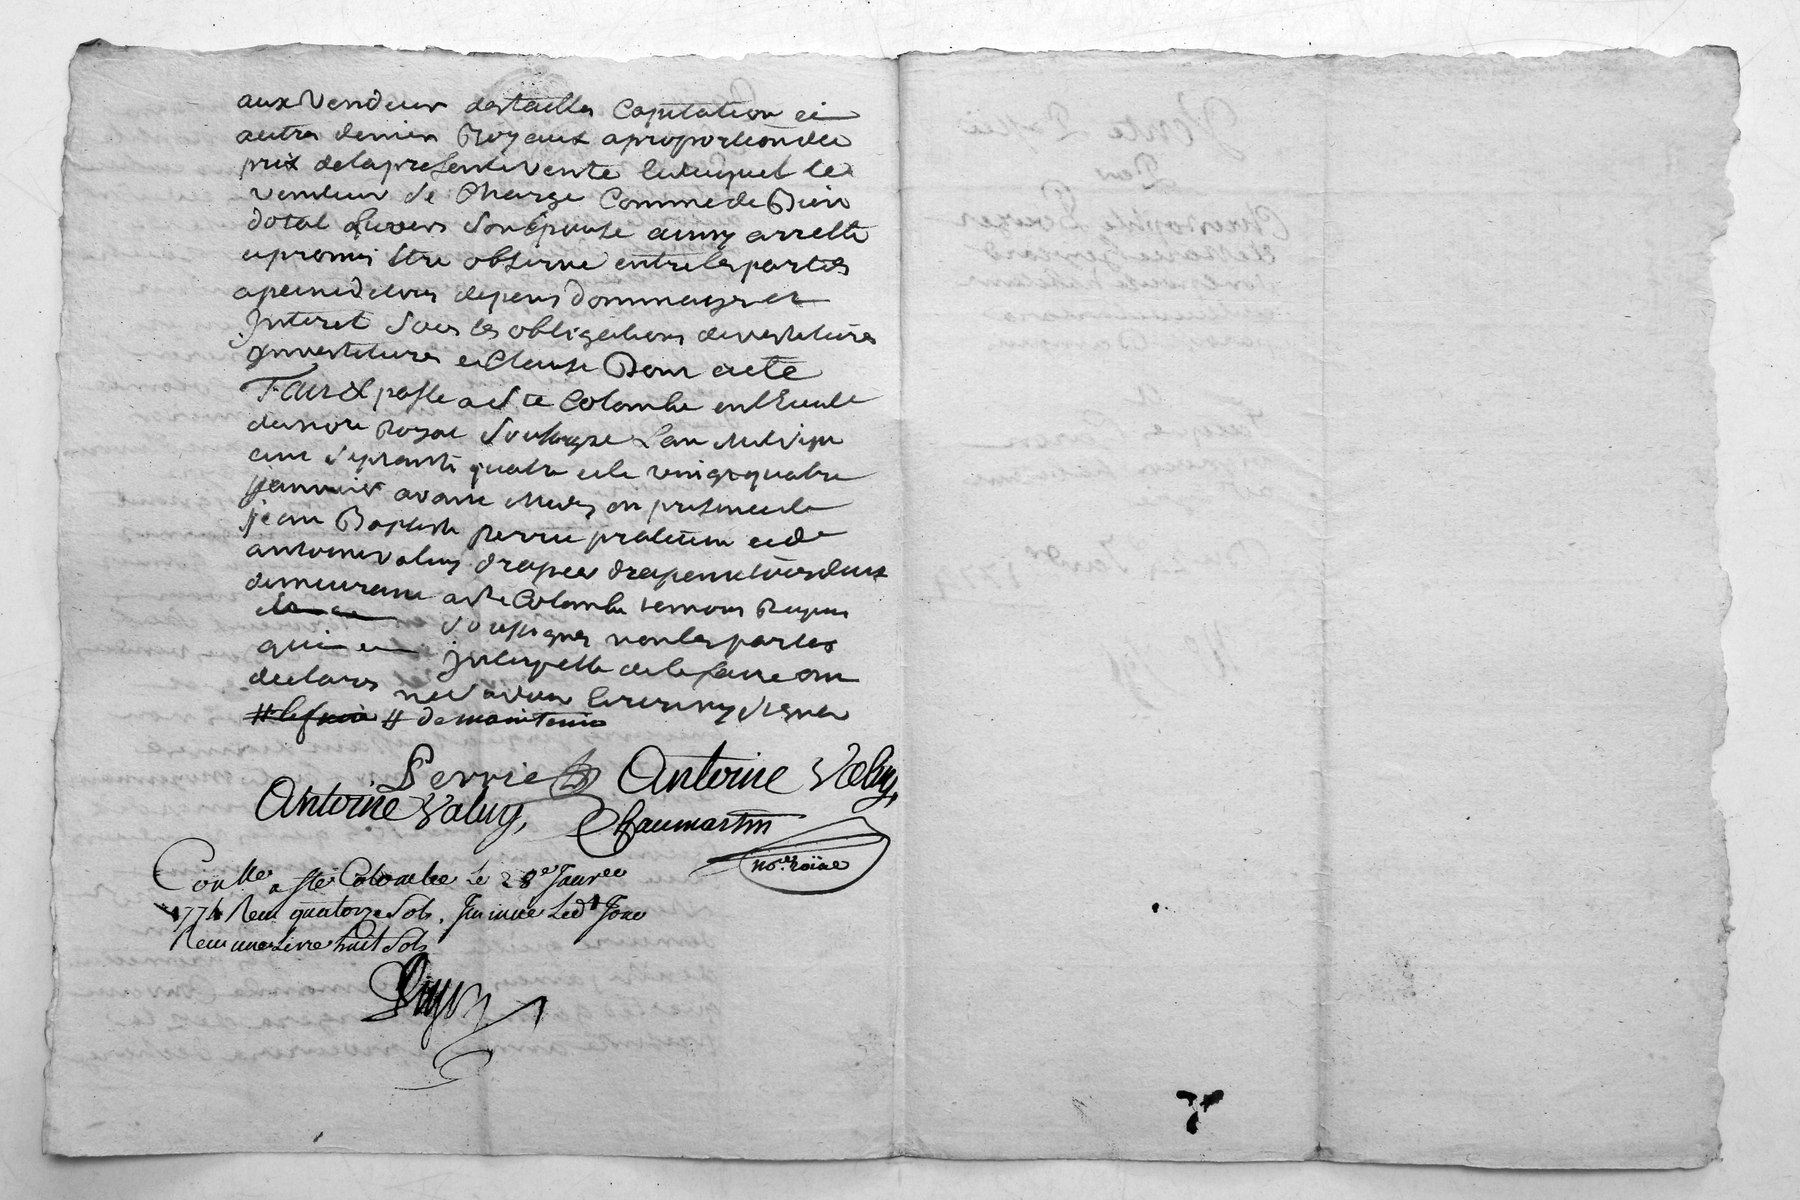 aux Vendeur des tailles Capitation et
autres deniers Royaux a proportion du
prix de la presente Vente lequel le
vendeur se Charge Comme de Bien
dotal Envers son Epouse ainsy arretté
et promis Etre observé entre les parties
a peine de tous depens dommages et
Interet sous les obligations devestitures
Investitures et Clause Dont acte
Fait & passé a Ste Colombe en l'Etude
du nore Royal soussigné L'an Mil sept
cent septante quatre et le vingt quatre
janvier avant Midy en presence de
jean Baptiste Perrie praticien et de
antoine valuy drapier drapant tous deux
demeurant a Ste Colombe temoins Requis
soussignes non les parties
qui en Interpellé de le faire ont
declarés ne savoir Ecrire ny signer
# de maintenir
Perrie Antoine Valuy,
Antoine Valuy, Chaumartin
nore. roïal
Conlle a Ste Colombe Le 28e Janvier
1774 Reçu quatorze Sols. Insinué Led Jour
Reçu une Livre huit Sols
Vente
Par
Christophle
A